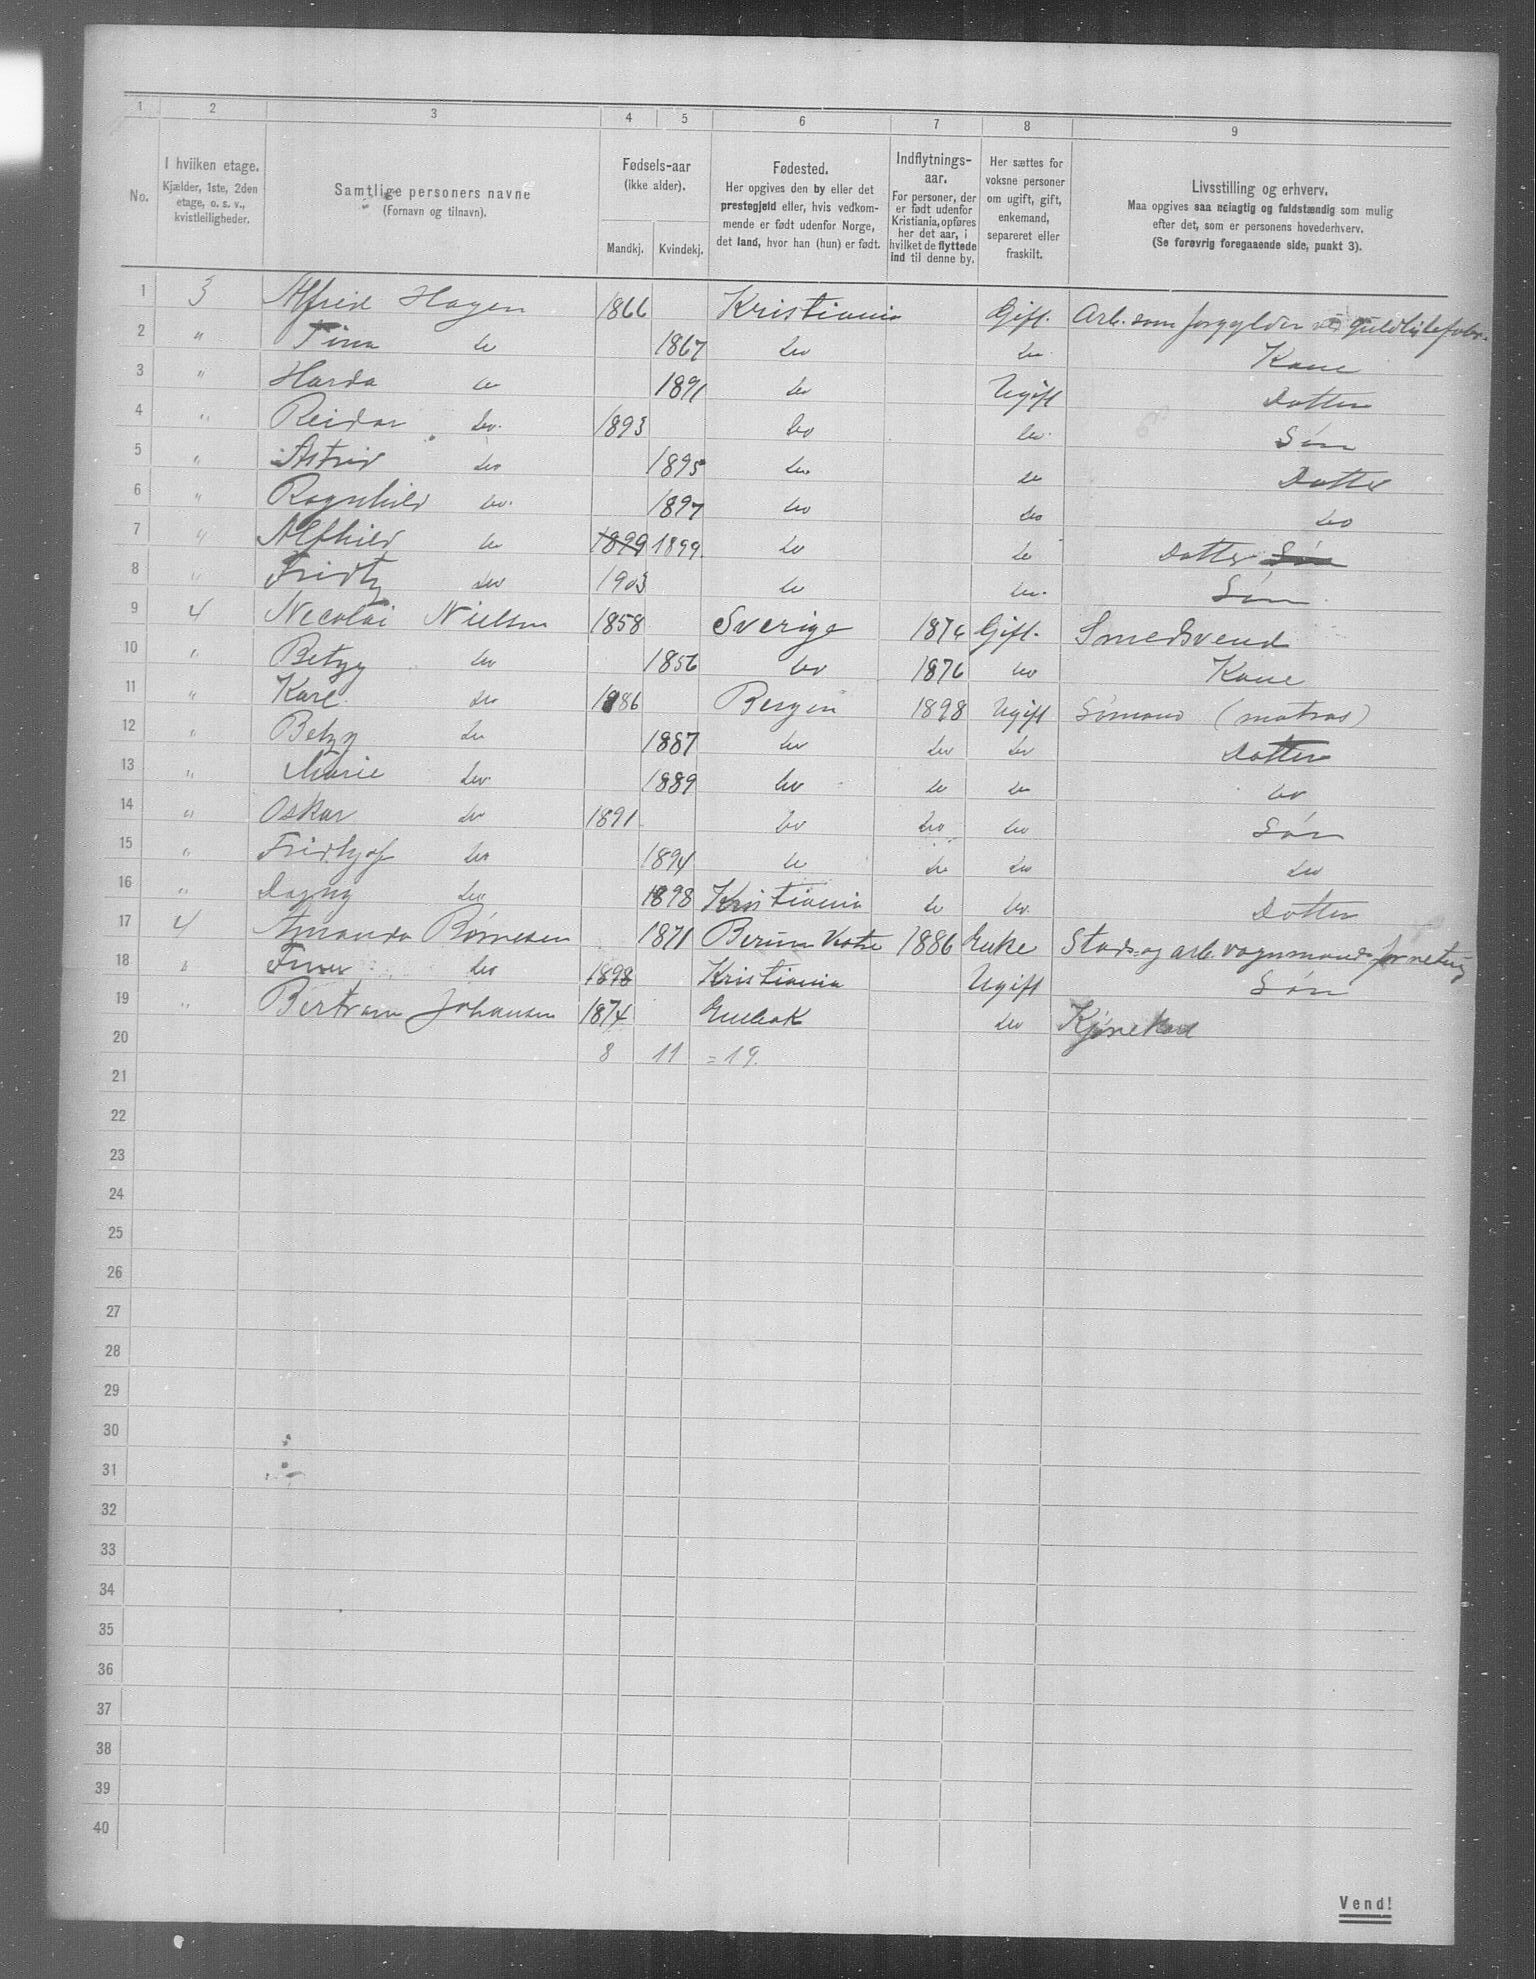 1 2 3 4 5 6 7 8 9
No. I hvilken etage. Kjælder, 1ste, 2den etage, o. s. v., kvistleiligheder. Samtlige personers navne (Fornavn og tilnavn). Fødsels-aar (ikke alder). Mandkj. Kvindekj. Fødested. Her opgives den by eller det prestegjeld eller, hvis vedkommende er født udenfor Norge, det land, hvor han (hun) er født. Indflytnings-aar. For personer, der er født udenfor Kristiania, opføres her det aar, i hvilket de flyttede ind til denne by. Her sættes for voksne personer om ugift, gift, enkemand, separeret eller fraskilt. Livsstilling og erhverv. Maa opgives saa nøiagtig og fuldstændig som mulig efter det, som er personens hovederhverv. (Se forøvrig foregaaende side, punkt 3).
1 3 Alfred Hagen 1866 Kristiania Gift. Arb. som forgylder ved guldlistefabr.
2 " Tina do 1867 do do Kone
3 " Harda do 1891 do Ugift Datter
4 " Reidar do. 1893 do do Søn
5 " Astrid do 1895 do do Datter
6 " Ragnhild do. 1897 do do do
7 " Alfhild do 1899 1899 do do Datter Søn
8 " Fridtz do 1903 do do. Søn
9 4 Necolai Nielsen 1858 Sverige 1876 Gift. Smedsvend
10 " Betzy do 1856 do 1876 do Kone
11 " Karl do 1886 Bergen 1898 Ugift Sømand (matros)
12 " Betzy do 1887 do do do Datter
13 " Marie do 1889 do do do do
14 " Oskar do 1891 do do do Søn
15 " Fridtjof do 1894 do do do do
16 " Dagny do 1898 Kristiania do do Datter
17 4 Amanda Børnesen 1871 Berum 1886 Enke Stads og arb. vognmands forretnig
18 " do 1898 Kristiania Ugift Søn
19 " Bertram Johansen 1874 Eneback do Kjørekarl
20 8 11 = 19.
21
22
23
24
25
26
27
28
29
30
31
32
33
34
35
36
37
38
39
40
Vend!